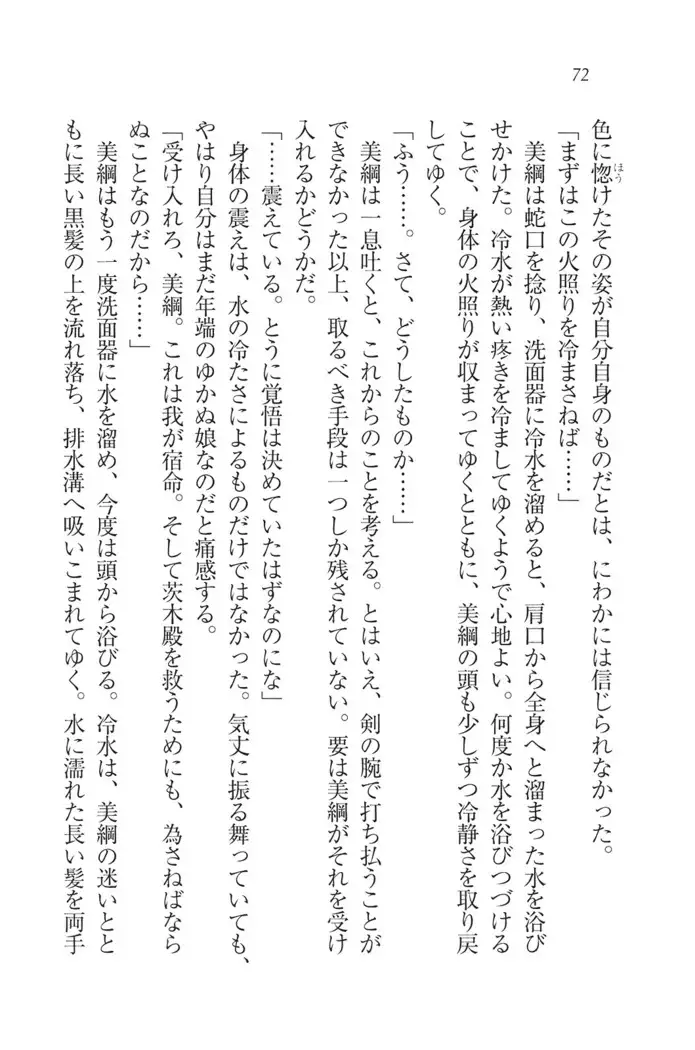 72
色に惚けたその姿が自分自身のものだとは、にわかには信じられなかった。
ほう
「まずはこの火照りを冷まさねば……」
美綱は蛇口を捻り、洗面器に冷水を溜めると、肩口から全身へと溜まった水を浴び
せかけた。冷水が熱い疼きを冷ましてゆくようで心地よい。何度か水を浴びつづける
ことで、身体の火照りが収まってゆくとともに、美綱の頭も少しずつ冷静さを取り戻
してゆく。
「ふう……。さて、どうしたものか……」
美綱は一息吐くと、これからのことを考える。とはいえ、剣の腕で打ち払うことが
できなかった以上、取るべき手段は一つしか残されていない。要は美綱がそれを受け
入れるかどうかだ。
「……震えている。とうに覚悟は決めていたはずなのにな」
身体の震えは、水の冷たさによるものだけではなかった。気丈に振る舞っていても、
やはり自分はまだ年端のゆかぬ娘なのだと痛感する。
「受け入れろ、美綱。これは我が宿命。そして茨木殿を救うためにも、為さねばなら
ぬことなのだから……」
美綱はもう一度洗面器に水を溜め、今度は頭から浴びる。冷水は、美綱の迷いとと
もに長い黒髪の上を流れ落ち、排水溝へ吸いこまれてゆく。水に濡れた長い髪を両手